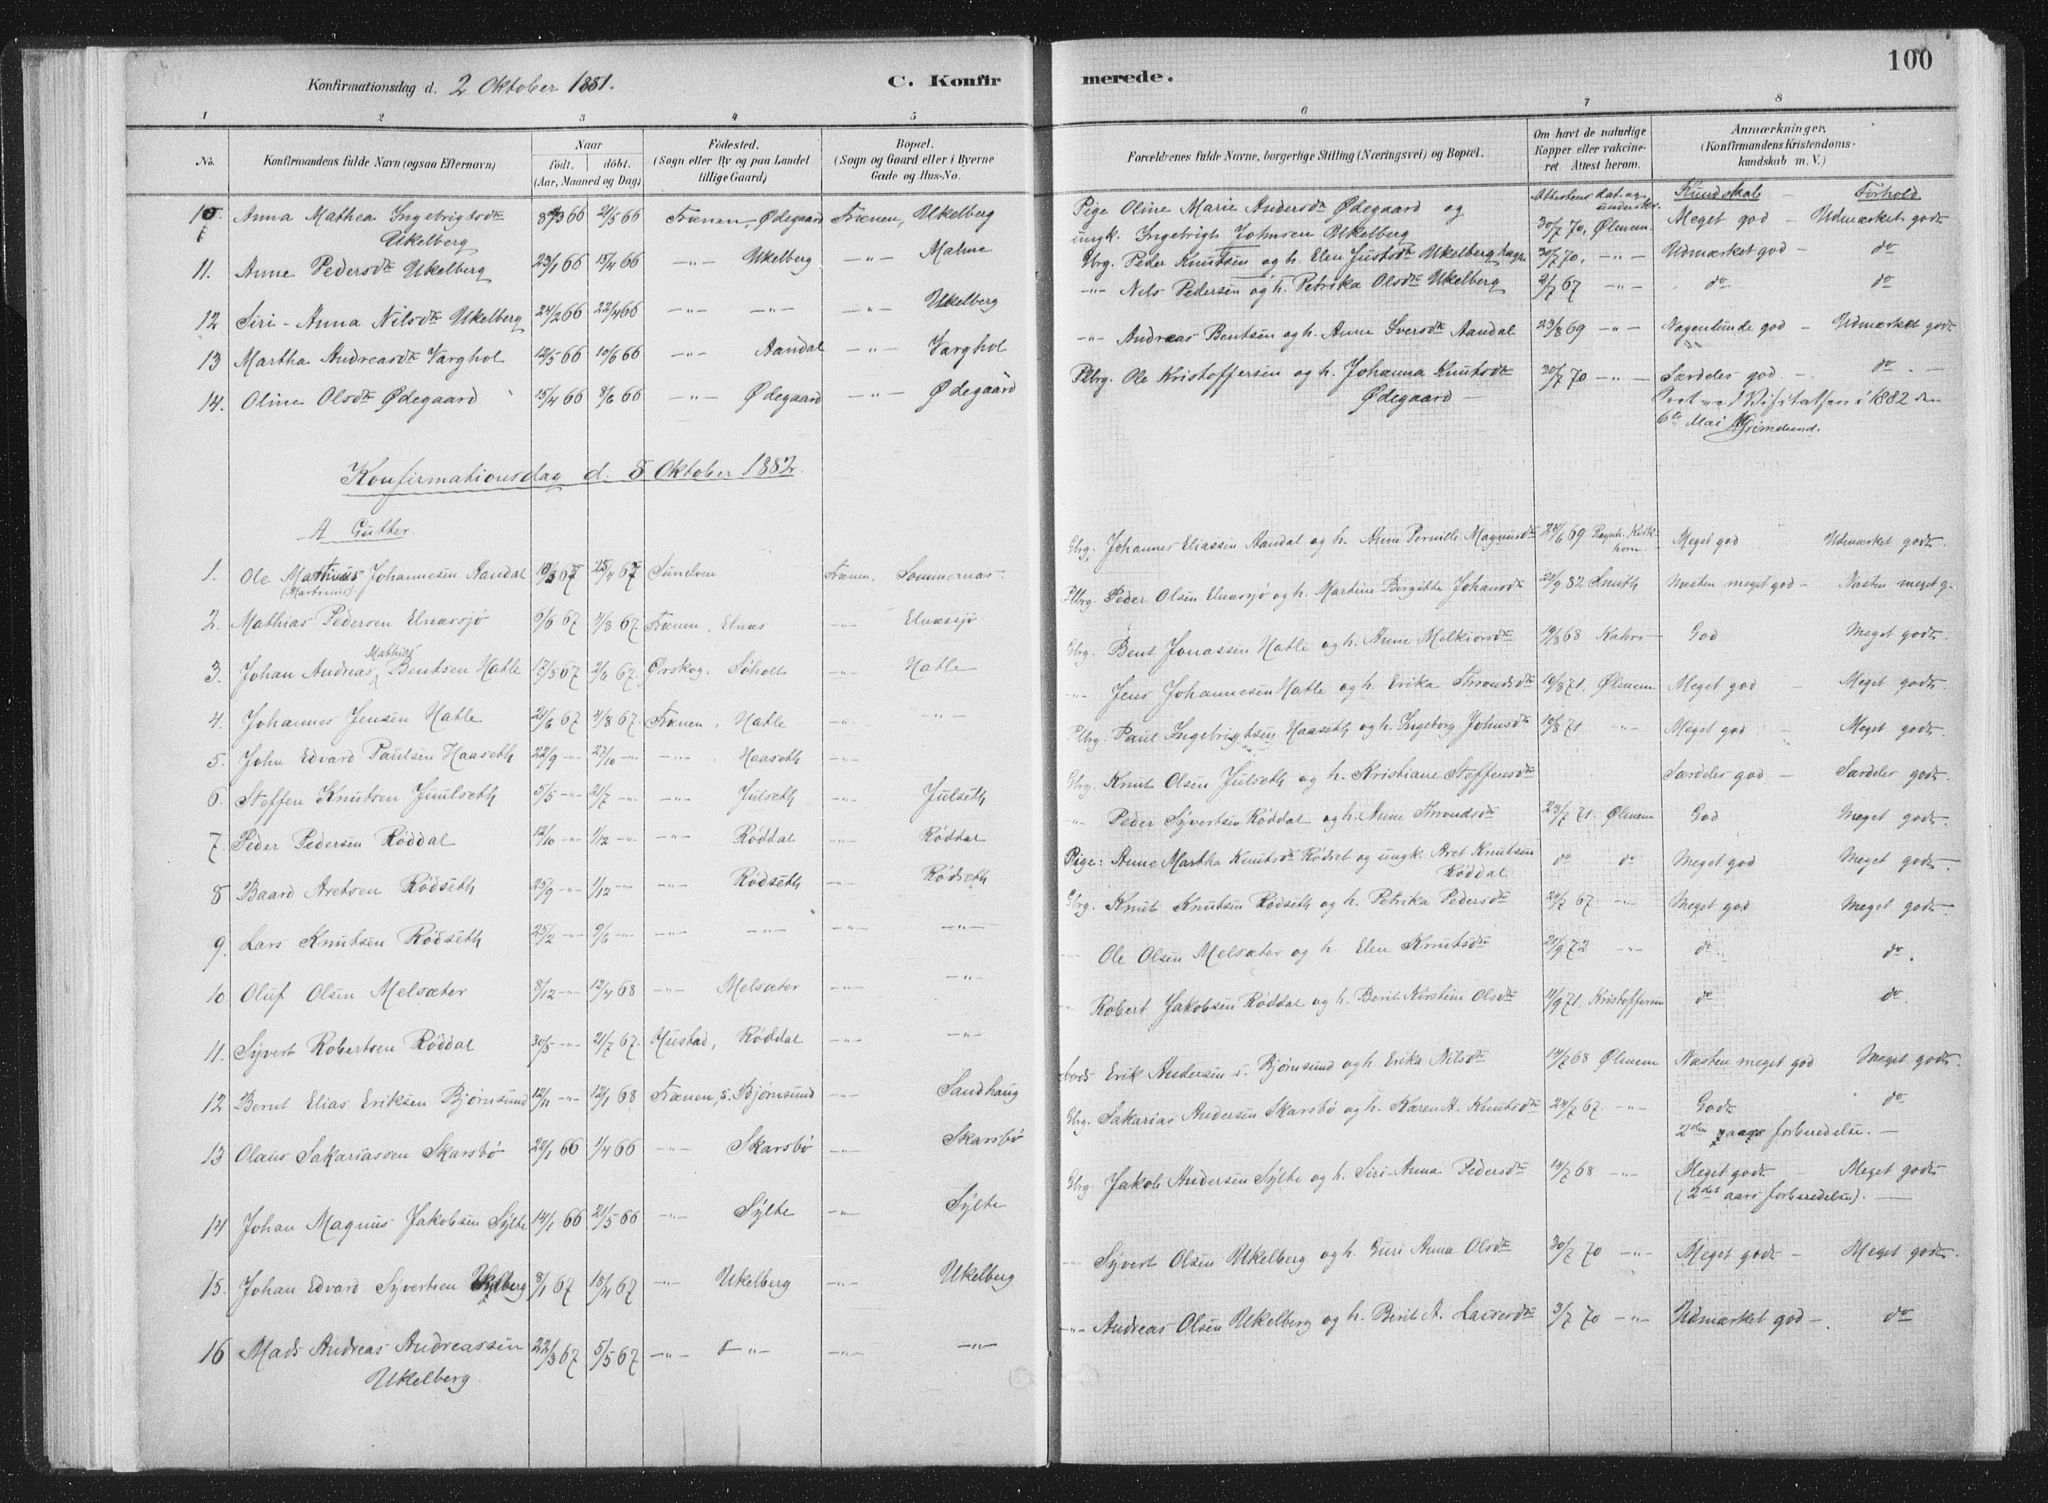 Konfirmationsdag d. 2 Oktober 1881. C. Konfir merede. 100
1 2 3 4 5 6 7 8
No. Konfirmandens fulde Navn (ogsaa Efternavn) Naar født. døbt. (Aar, Maaned og Dag) Fødested. (Sogn eller By og paa Landet tillige Gaard) Bopæl. (Sogn og Gaard eller i Byerne Gade og Hus-No. Forældrenes fulde Navne, borgerlige Stilling (Næringsvei) og Bopæl. Om havt de naturlige Kopper eller vakcineret Attest herom. Anmærkninger. (Konfirmandens Kristendomskundskab m. V.)
Kundskab - Forhold
10. Anna Mathea Ingebrigtsdtr Ukelberg 8/3 66 21/5 66 Frænen, Ødegaard Frænen, Ukelberg Pige Oline Marie Andersdtr Ødegaard og ungk. Ingebrigt Johnsen Ukelberg 30/7 70, Ølmem Meget god - Udmærket godt
11. Anne Pedersdtr Ukelberg 23/1 66 15/4 66 -"- Ukelberg -"- Malme Gbrg. Peder Knutsen og h. Elen Justsdtr Ukelberghagen 30/7 70, -"- Udmærket god - do
12 Siri-Anna Nilsdtr Ukelberg 24/2 66 22/4 66 -"- -"- -"- Ukelberg -"- Nils Pedersen og h. Petrika Olsdtr Ukelberg 2/7 67 -"- do do
13 Martha Andreasdtr Varghol 12/5 66 10/6 66 -"- Aandal -"- Varghol -"- Andreas Bentsen og h. Anne Iversdtr Aandal 23/8 69 -"- Nogenlunde god - Udmærket godt
14. Oline Olsdtr Ødegaard 15/4 66 8/6 66 -"- Ødegaard -"- Ødegaard Plbrg. Ole Kristoffersen og h. Johanna Knutsdtr Ødegaard - 30/7 70 -"- Særdeles god - do
1882 den 6te Mai Grimelund.
Konfirmationsdag d. 8 Oktober 1882.
A Gutter
1. Ole Mathias (Martinus) Johannesen Aandal 10/3 67 28/4 67 Sundven Frænen, Sommernas Gbrg. Johannes Eliassen Aandal og h. Anne Pernille Magnusdtr 24/6 69 Meget god Udmærket godt.
2. Mathias Pedersen Elnæssjø 9/6 67 4/8 67. Frænen, Elnæs -"- Elnæssjø Plbrg. Peder Olsen Elnæssjø og h. Martine Birgitte Johansdtr 23/9 82 Smith Næsten meget god - Næsten meget g.
3. Johan Andreas Mathias Bentsen Hatle 17/5 67 2/6 67. Ørskog. Søholt -"- Hatle Gbrg. Bent Jonassen Hatle og h. Anne Melkiorsdtr 19/8 68 Kahrs God Meget godt.
4. Johannes Jensen Hatle 21/6 67 4/8 67. Frænen, Hatle -"- -"- -"- Jens Johannesen Hatle og h. Erika Throndsdtr 10/8 71. Ølmem Meget god - Meget godt.
5. John Edvard Paulsen Haaseth 22/9 -"- 27/10 -"- -"- Haaseth -"- Plbrg. Paul Ingebrigtsen Haaseth og h. Ingeborg Johnsdtr 10/8 71 -"- Meget god - Meget godt.
6. Steffen Knutsen Juulseth 5/5 -"- 21/7 -"- -"- Julseth -"- Julseth Gbrg. Knut Olsen Julseth og h. Kristiane Steffensdtr Særdeles god - Særdeles godt.
7. Peder Pedersen Røddal 12/10 -"- 1/12 -"- -"- Røddal -"- Røddal -"- Peder Syvertsen Røddal og h. Anne Throndsdtr 23/7 71. Ølmem God Meget godt.
8 Baard Aretsen Rødseth 25/9 -"- 1/12 -"- -"- Rødseth -"- Rødseth Pige: Anne Martha Knutsdtr Rødset og ungk. Aret Knutsen Røddal do do Meget god Meget godt.
9. Lars Knutsen Rødseth 25/2 -"- 9/6 -"- -"- -"- -"- -"- Gbrg. Knut Knutsen Rødseth og h. Petrika Pedersdtr 29/7 67 -"- Meget god Meget godt.
10. Oluf Olsen Melsæter 8/12 -"- 12/4 68 -"- Melsæter -"- -"- Ole Olsen Melsæter og h. Elen Knutsdtr 21/9 72 -"- do do.
11. Syvert Robertsen Røddal 30/5 -"- 21/7 67. Hustad, Røddal -"- -"- Robert Jakobsen Røddal og h. Berit Kirstine Olsdtr 11/9 71. Kristoffersen do do.
12 Bernt Elias Eriksen Bjørnsund 12/11 -"- 12/1 68 Frænen, s. Bjørnsund -"- Sandhaug Erik Andersen s. Bjørnsund og h. Erika Nilsdtr 14/7 68 Ølmem Næsten meget god Meget godt.
13 Olaus Sakariassen Skarsbø 22/1 66 1/4 66 -"- Skarsbø -"- Skarsbø Gbrg. Sakarias Andersen Skarsbø og h. Karen A. Knutsdtr 24/7 67. -"- Godt do
2den aars forberedelse. -
14 Johan Magnus Jakobsen Sylte 14/1 66 21/5 66 -"- Sylte -"- Sylte Gbrg. Jakob Andersen Sylte og h. Siri-Anna Pedersdtr 14/7 68 -"- Meget godt - Meget godt
(2det aars forberedelse). -
15. Johan Edvard Syvertsen Ukelberg 8/1 67 18/4 67 -"- Ukelberg -"- Ukelberg -"- Syvert Olsen Ukelberg og h. Guri Anna Olsdtr 30/7 70 -"- Meget godt - Meget godt.
16 Mads Andreas Andreassen Ukelberg. 22/3 67 5/5 67 -"- -"- -"- -"- -"- Andreas Olsen Ukelberg og h. Berit A. Lassesdtr 3/7 70 -"- Udmærket god - do